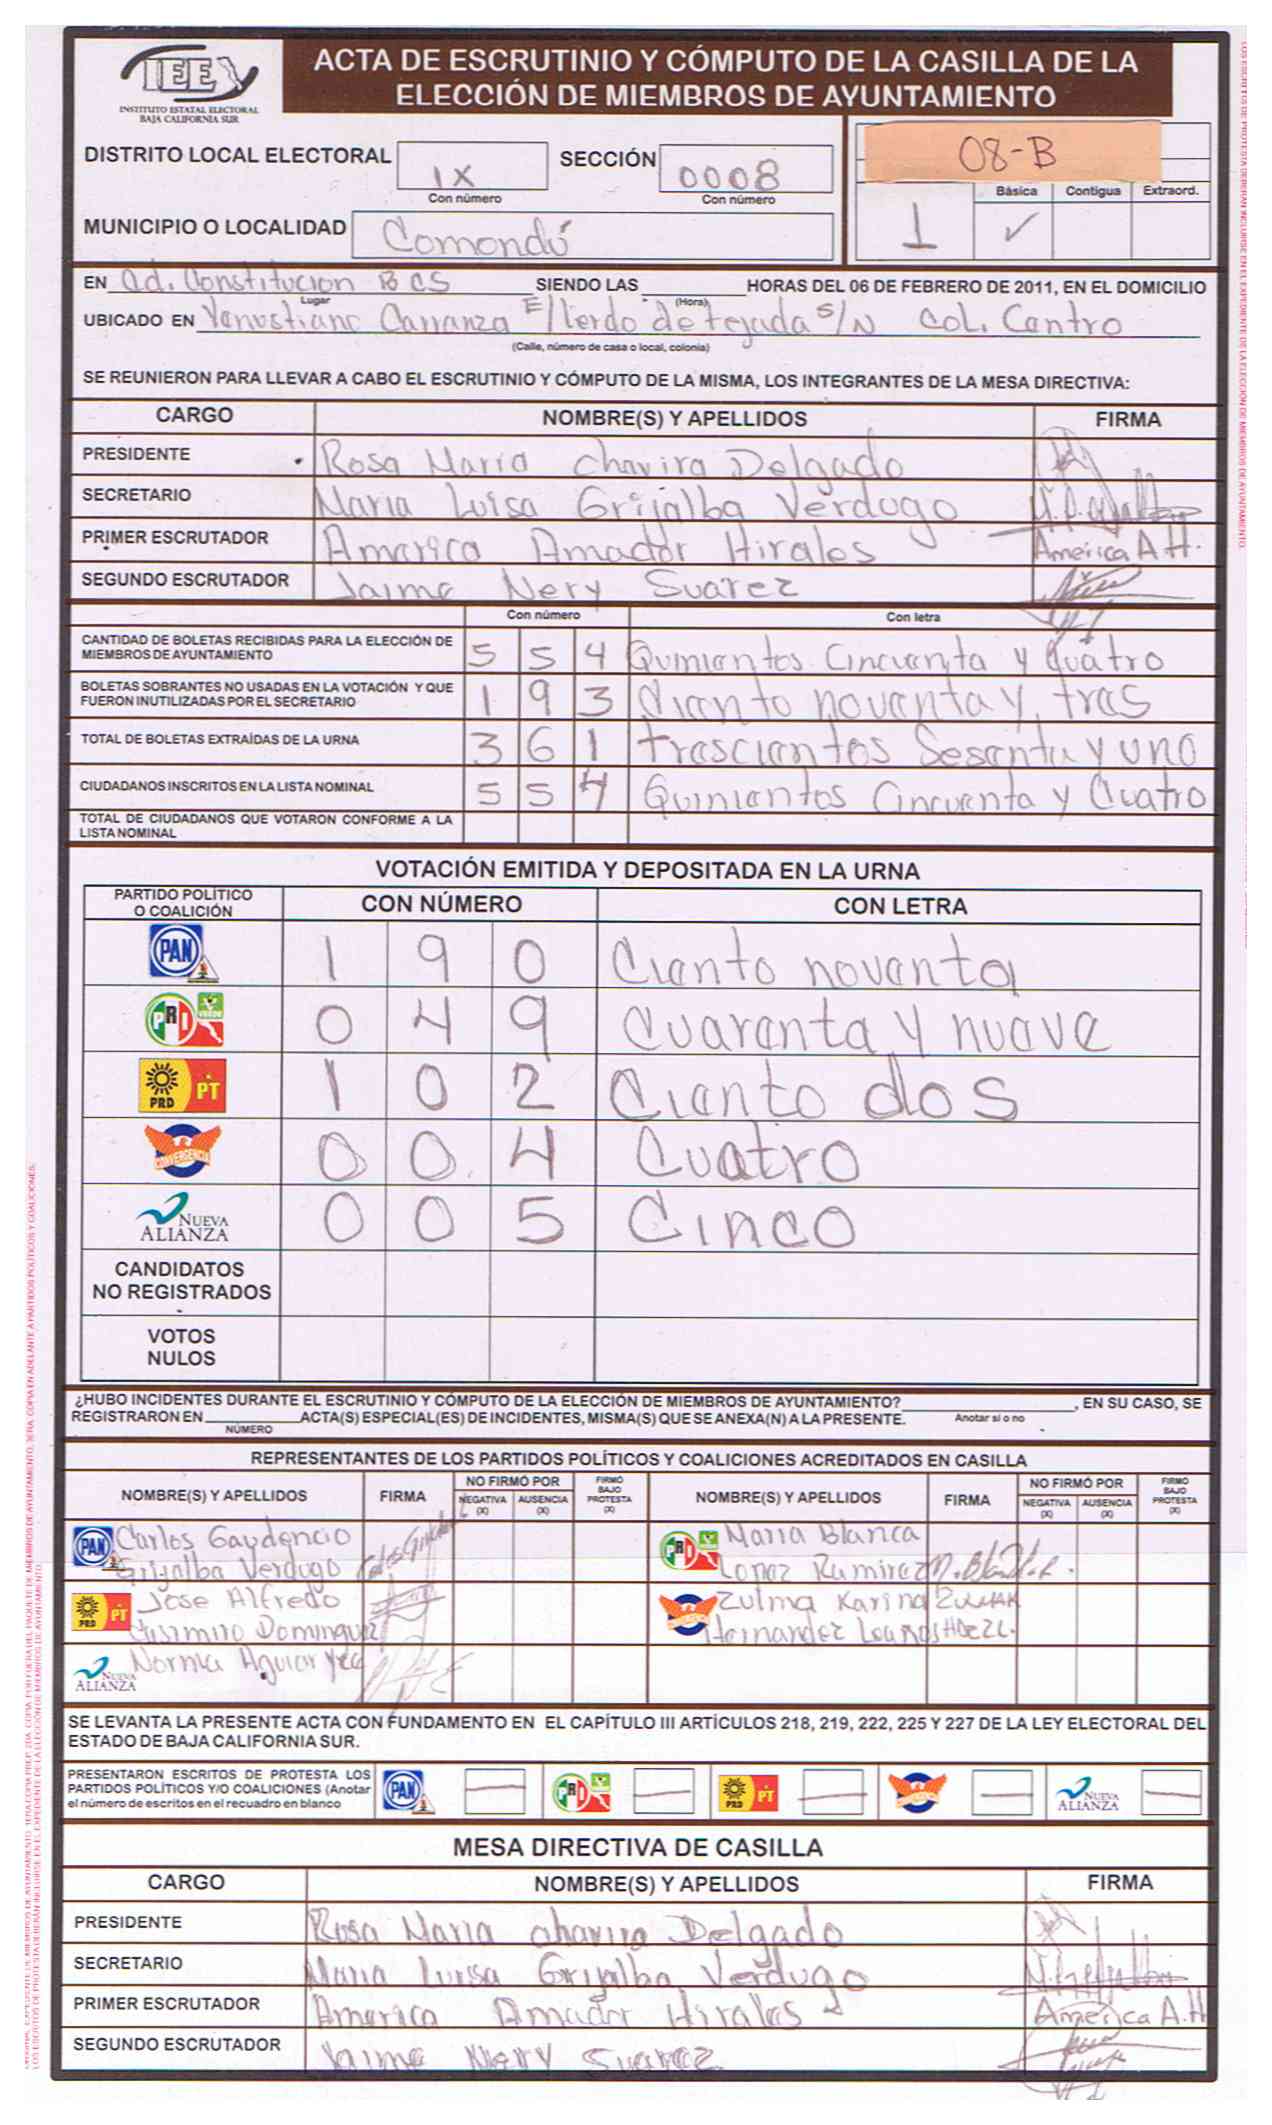 IEE
INSTITUTO ESTATAL ELECTORAL
BAJA CALIFORNIA SUR
ACTA DE ESCRUTINIO Y CÓMPUTO DE LA CASILLA DE LA
ELECCIÓN DE MIEMBROS DE AYUNTAMIENTO
DISTRITO LOCAL ELECTORAL IX SECCIÓN 0008
Con número Con número
08-B
Básica Contigua Extraord.
1 ✓
MUNICIPIO O LOCALIDAD Comondú
EN Cd. Constitucion BCS SIENDO LAS ______ HORAS DEL 06 DE FEBRERO DE 2011, EN EL DOMICILIO
Lugar (Hora)
UBICADO EN Venustiano Carranza E/ lerdo de tejada S/N Col. Centro
(Calle, número de casa o local, colonia)
SE REUNIERON PARA LLEVAR A CABO EL ESCRUTINIO Y CÓMPUTO DE LA MISMA, LOS INTEGRANTES DE LA MESA DIRECTIVA:
CARGO NOMBRE(S) Y APELLIDOS FIRMA
PRESIDENTE Rosa María Chavira Delgado
SECRETARIO Maria Luisa Grijalba Verdugo
PRIMER ESCRUTADOR America Amador Hirales América A.H.
SEGUNDO ESCRUTADOR Jaime Nery Suarez
Con número Con letra
CANTIDAD DE BOLETAS RECIBIDAS PARA LA ELECCIÓN DE
MIEMBROS DE AYUNTAMIENTO 5 5 4 Quinientos Cincuenta y Cuatro
BOLETAS SOBRANTES NO USADAS EN LA VOTACIÓN Y QUE
FUERON INUTILIZADAS POR EL SECRETARIO 1 9 3 Ciento noventa y tres
TOTAL DE BOLETAS EXTRAÍDAS DE LA URNA 3 6 1 trescientos Sesenta y uno
CIUDADANOS INSCRITOS EN LA LISTA NOMINAL 5 5 4 Quinientos Cincuenta y Cuatro
TOTAL DE CIUDADANOS QUE VOTARON CONFORME A LA
LISTA NOMINAL
VOTACIÓN EMITIDA Y DEPOSITADA EN LA URNA
PARTIDO POLÍTICO
O COALICIÓN CON NÚMERO CON LETRA
PAN 1 9 0 Ciento noventa
PRI VERDE 0 4 9 Cuarenta y nueve
PRD PT 1 0 2 Ciento dos
CONVERGENCIA 0 0 4 Cuatro
NUEVA ALIANZA 0 0 5 Cinco
CANDIDATOS
NO REGISTRADOS
VOTOS
NULOS
¿HUBO INCIDENTES DURANTE EL ESCRUTINIO Y CÓMPUTO DE LA ELECCIÓN DE MIEMBROS DE AYUNTAMIENTO? ______, EN SU CASO, SE
REGISTRARON EN ______ ACTA(S) ESPECIAL(ES) DE INCIDENTES, MISMA(S) QUE SE ANEXA(N) A LA PRESENTE. Anotar si o no
NÚMERO
REPRESENTANTES DE LOS PARTIDOS POLÍTICOS Y COALICIONES ACREDITADOS EN CASILLA
NOMBRE(S) Y APELLIDOS FIRMA NO FIRMÓ POR NEGATIVA (X) AUSENCIA (X) FIRMÓ BAJO PROTESTA (X) NOMBRE(S) Y APELLIDOS FIRMA NO FIRMÓ POR NEGATIVA (X) AUSENCIA (X) FIRMÓ BAJO PROTESTA (X)
PAN Carlos Gaudencio
Grijalba Verdugo
PRI Maria Blanca
Lopez Ramirez
PRD PT Jose Alfredo
Casimiro Dominguez
CONVERGENCIA Zulma Karina
Hernandez
NUEVA ALIANZA Norma Aguiar
SE LEVANTA LA PRESENTE ACTA CON FUNDAMENTO EN EL CAPÍTULO III ARTÍCULOS 218, 219, 222, 225 Y 227 DE LA LEY ELECTORAL DEL
ESTADO DE BAJA CALIFORNIA SUR.
PRESENTARON ESCRITOS DE PROTESTA LOS
PARTIDOS POLÍTICOS Y/O COALICIONES (Anotar
el número de escritos en el recuadro en blanco
PAN — PRI — PRD PT — CONVERGENCIA — NUEVA ALIANZA —
MESA DIRECTIVA DE CASILLA
CARGO NOMBRE(S) Y APELLIDOS FIRMA
PRESIDENTE Rosa Maria chavira Delgado
SECRETARIO Maria Luisa Grijalba Verdugo
PRIMER ESCRUTADOR America Amador Hirales América A.H
SEGUNDO ESCRUTADOR Jaime Nery Suarez